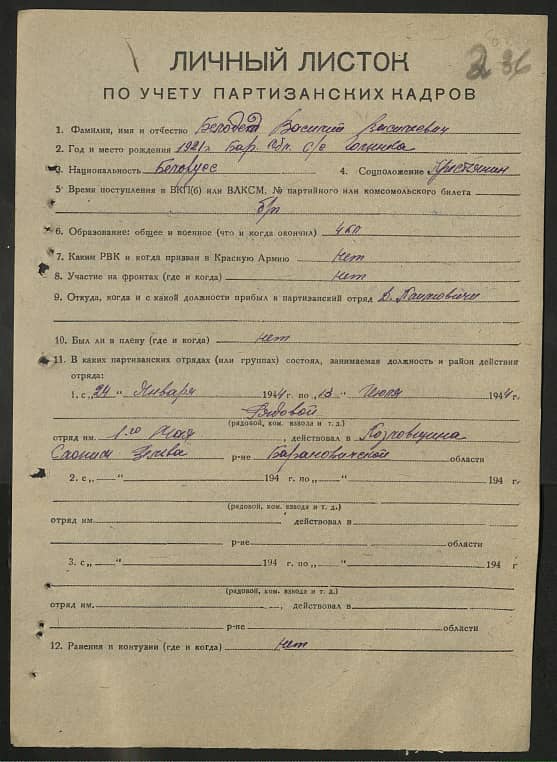 236
ЛИЧНЫЙ ЛИСТОК
ПО УЧЕТУ ПАРТИЗАНСКИХ КАДРОВ
1. Фамилия, имя и отчество Василий Васильевич
2. Год и место рождения 1921 г. Бар. обл. с/с
3. Национальность Белорус 4. Соцположение Крестьянин
5 Время поступления в ВКП(б) или ВЛКСМ, № партийного или комсомольского билета
б/п
6. Образование: общее и военное (что и когда окончил) 4 кл
7. Каким РВК и когда призван в Красную Армию нет
8. Участие на фронтах (где и когда) нет
9. Откуда, когда и с какой должности прибыл в партизанский отряд д.
10. Был ли в плену (где и когда) нет
11. В каких партизанских отрядах (или группах) состоял, занимаемая должность и район действия
отряда:
1. с „24 “ Января 1944 г. по „13 “ Июля 1944 г.
Рядовой
(рядовой, ком. взвода и т. д.)
отряд им. 1го Мая , действовал в Козловщина
Слоним Зельва р-не Барановичской области
2. с „ “ 194 г. по „ “ 194 г.
(рядовой, ком. взвода и т. д.)
отряд им. действовал в
р-не области
3. с „ “ 194 г. по „ “ 194 г
(рядовой, ком. взвода и т. д.)
отряд им. , действовал в
р-не области
12. Ранения и контузии (где и когда) нет